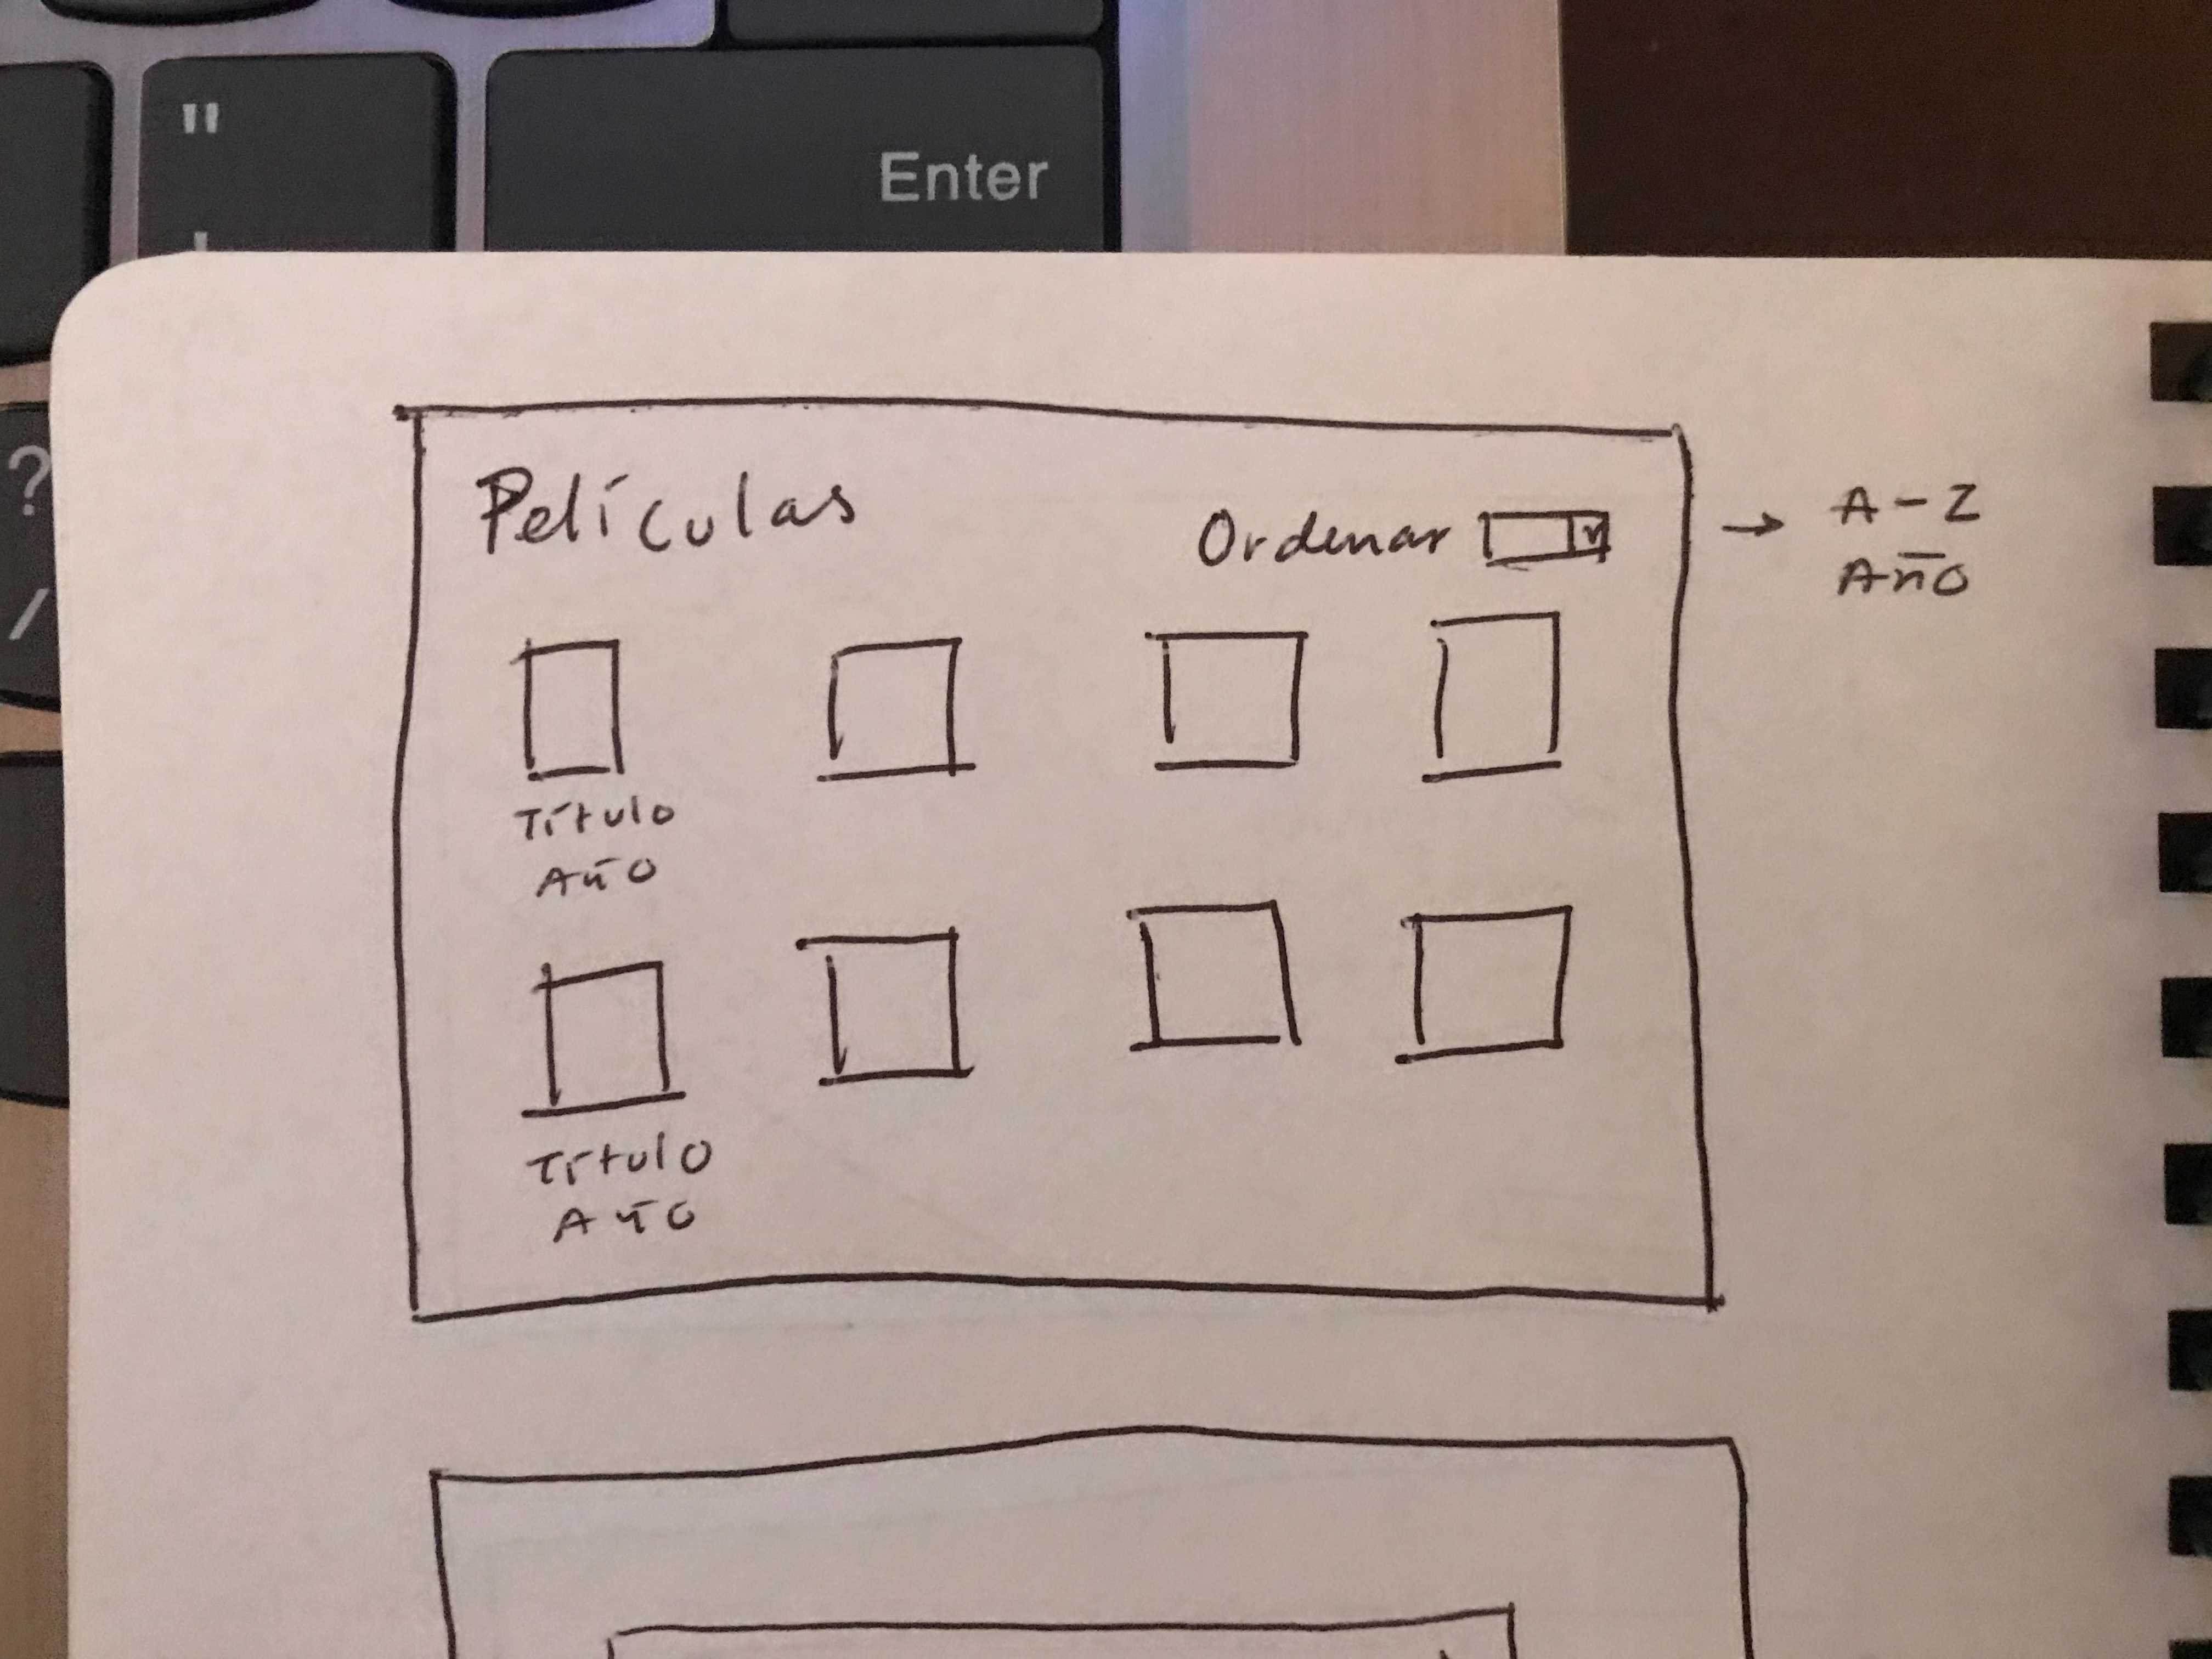 "
'
Enter
?
/
Películas
Ordenar
→ A-Z
Año
Título
Año
Título
Año